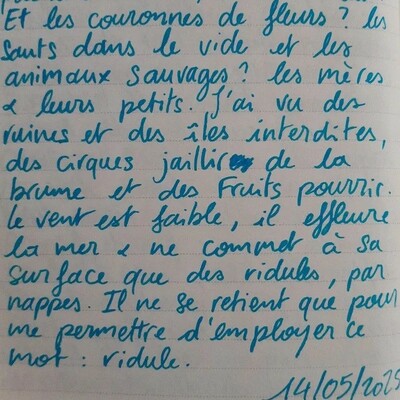 Et les couronnes de fleurs ? les
sauts dans le vide et les
animaux sauvages ? les mères
& leurs petits. J'ai vu des
ruines et des îles interdites,
des cirques jaillir de la
brume et des fruits pourrir.
Le vent est faible, il effleure
la mer & ne commet à sa
surface que des ridules, par
nappes. Il ne se retient que pour
me permettre d'employer ce
mot : ridule.
14/05/2025